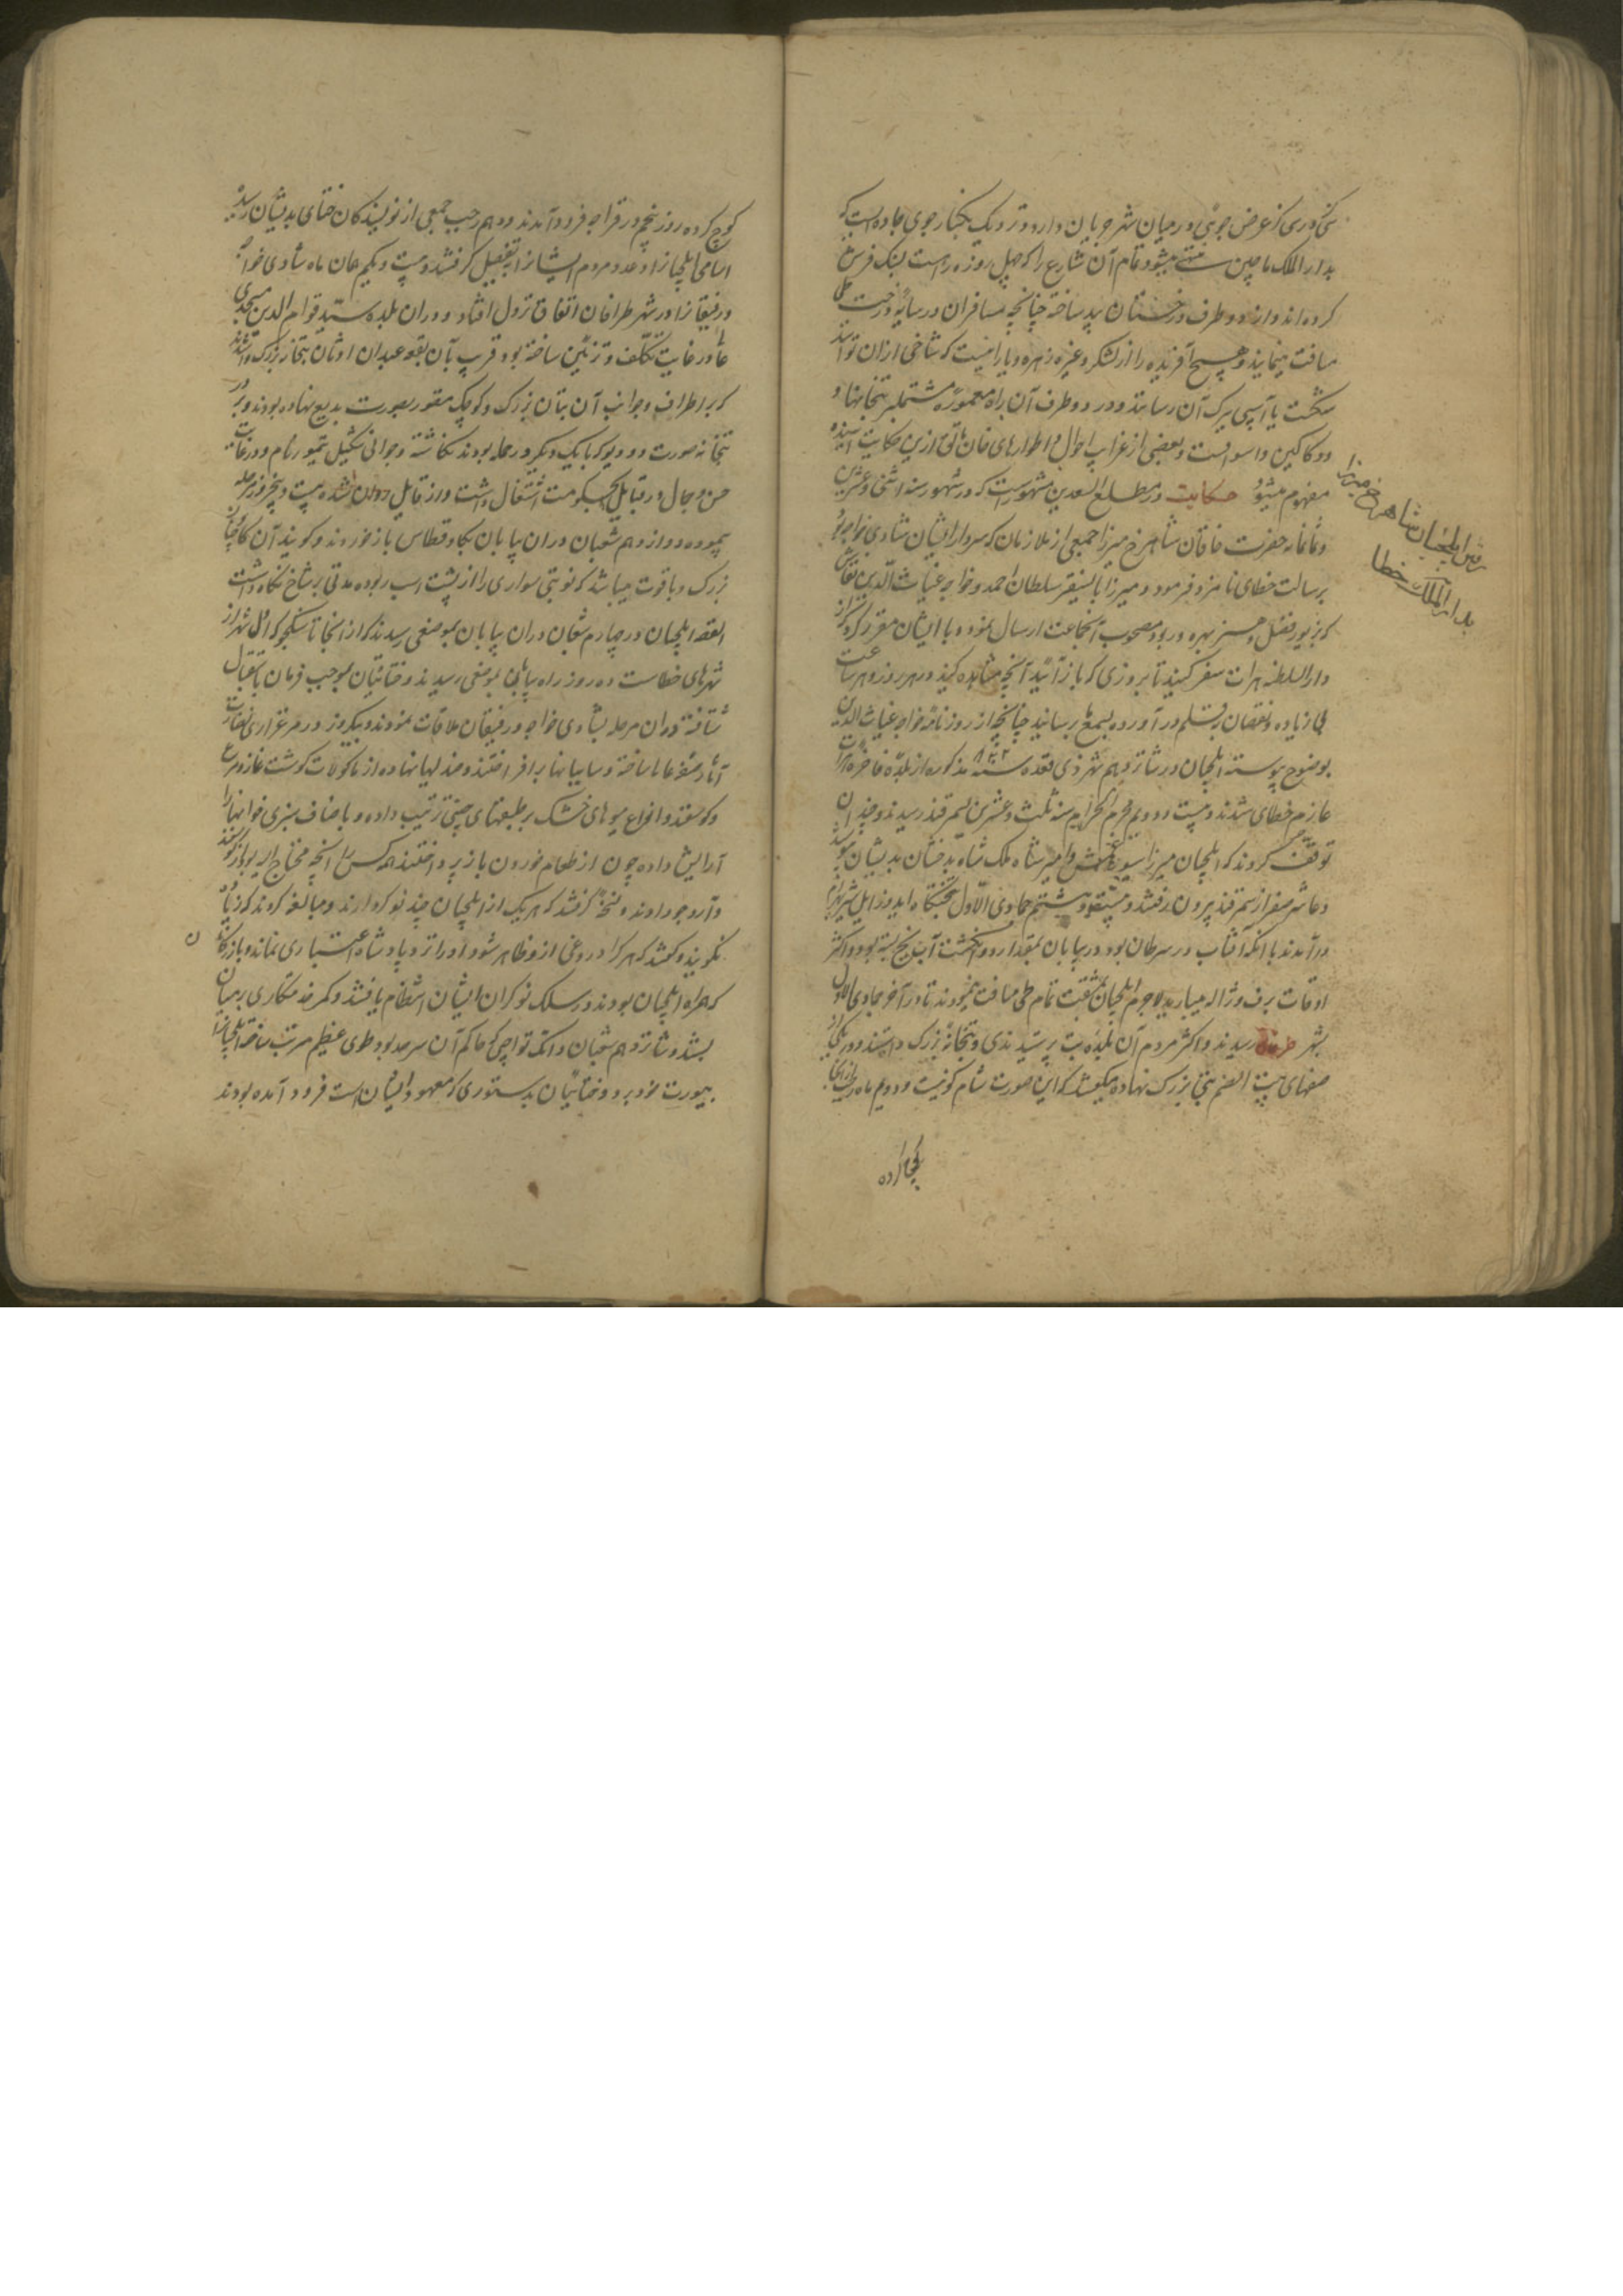 عرض جوی در میان شهر جریان دارد و نزدیک بکنار جوی جاده ایست که
بدار الملک ماچین منتهی میشود و تمام آن شارع را که چهل روزه راهست بسنگ فرش
کرده اند و از دو طرف درختان بید ساخته چنانچه مسافران در سایه درخت طی
مسافت مینمایند و هیچ آفریده را از لشکر و غیره زهره و یارا نیست که شاخی ازان تواند
شکست یا آسیبی ببرک آن رساند و در دو طرف آن راه معموره مشتملبر بتخانها و
دوکاکین و اسواقست و بعضی از غرایب احوال و اطوارهای خان بالق ازین حکایت آینده
مفهوم میشود حکایت در مطلع السعدین مشهورست که در شهور سنه اثنی و عشرین
و ثمانمایه حضرت خاقان شاهرخ میرزا جمعی از ملازمان که سردار ایشان شادی خواجه بود
برسالت خطای نامزد فرمود و میرزا بایسنقر سلطان احمد و خواجه غیاث الدین نقاش
که بزیور فضل و هنر بهره ور بود مصحوب آنجماعت ارسال نمود و با ایشان مقرر کرد که از
دار السلطنه هرات سفر کنید تا بروزی که باز آئید آنچه مشاهده کنید در هر روز و هر ساعت
بی زیاده و نقصان بقلم در آورده بسمع رسانید چنانچه از روز نامه خواجه غیاث الدین
بوضوح پیوسته ایلچیان در شانزدهم شهر ذی قعده سنه ۸۲۲ مذکوره از بلده فاخره هرات
عازم خطای شدند و بیست و دویم محرم الحرام سنه ثلث و عشرین بسمرقند رسیدند و چندان
توقف کردند که ایلچیان میرزا سیورغتمش و امیر شاه ملک و شاه بدخشان بدیشان پیوستند
و عاشر صفر از سمرقند بیرون رفتند و هشتم جمادی الاول
در آمدند با آنکه آفتاب در سرطان بود در بیابان بمقدار دو انگشت آب یخ بسته بود و اکثر
اوقات برف و ژاله میبارید لاجرم ایلچیان بمشقت تمام طی مسافت نمودند تا در آخر جمادی الاول
بشهر رسیدند و اکثر مردم آن بلده بت پرستیدندی و بتخانه بزرک داشتند و در یکی از
صفهای بیت الصنم بتی بزرک نهاده میگفتند که این صورت شام کونیست و دویم ماه رجب ازانجا
کوچ کرده
رفتن ایلچیان شاهرخ میرزا
بدار الملک خطا
کوچ کرده روز پنجم در قراجه فرود آمدند و دهم رجب جمعی از نویسندکان ختای بدیشان رسیدند
اسامی ایلچیانرا و عدد مردم ایشانرا بتفصیل گرفتند و بیست و یکم همان ماه شادی خواجه
و رفیقانرا در شهر طرافان اتفاق نزول افتاد و دران بلده سید قوام الدین مسجدی
عالی در غایت تکلف و تزئین ساخته بود و قریب بآن بقعه عبدان اوثان بتخانه بزرک داشتند
که بر اطراف و جوانب آن بتان بزرک و کوچک مصور بصورت بدیع نهاده بودند و بر در
بتخانه صورت دو دیو که با یک دیکر در حمله بودند نگاشته و جوانی شکیل تیمور نام در غایت
حسن و جمال در قبایل بحکومت اشتغال داشت و از قایل روان شده بیست و پنج روز مرحله
پیموده دوازدهم شعبان دران بیابان بکاو قطاس باز خوردند و گویند آن گاو چنان
بزرک و با قوت میباشد که نوبتی سواری را از پشت اسب ربوده مدتی بر شاخ نگاه داشت
القصه ایلچیان در چهاردهم شعبان دران بیابان بموضعی رسیدند که از انجا تا سکجو که اول شهر از
شهرهای خطاست ده روز راه بیابان بموضعی رسیدند و ختائیان بموجب فرمان باستقبال
شتافته دران مرحله بشادی خواجه و رفیقان ملاقات نمودند و بیکروز در مرغزاری
آثار صفهای عالی ساخته و سایبانها بر افراختند و صندلیها نهاده از ماکولات گوشت غاز و مرغ
و گوسفند و انواع میوهای خشک بر طبقهای چینی ترتیب داده و باصناف سبزی خوانها را
آرایش داده چون از طعام خوردن باز پرداختند هر کس را آنچه محتاج الیه بود از گوسفند
و آرد و جو دادند و نسخه گرفتند که هر یک از ایلچیان چند نوکر دارند و مبالغه کردند که زیاده
نکویند و گفتند که هر کرا دروغی ازو ظاهر شود او را نزد پادشاه اعتباری نماند و بازرکانان
که همراه ایلچیان بودند در سلک نوکران ایشان انتظام یافتند و کمر خدمتکاری بر میان
بستند و شانزدهم شعبان دانک تواچی که حاکم آن سرحد بود طوی عظیم مرتب ساخته ایلچیانرا
بیورت خود برد و ختائیان بدستوری که معهود ایشان است فرود آمده بودند